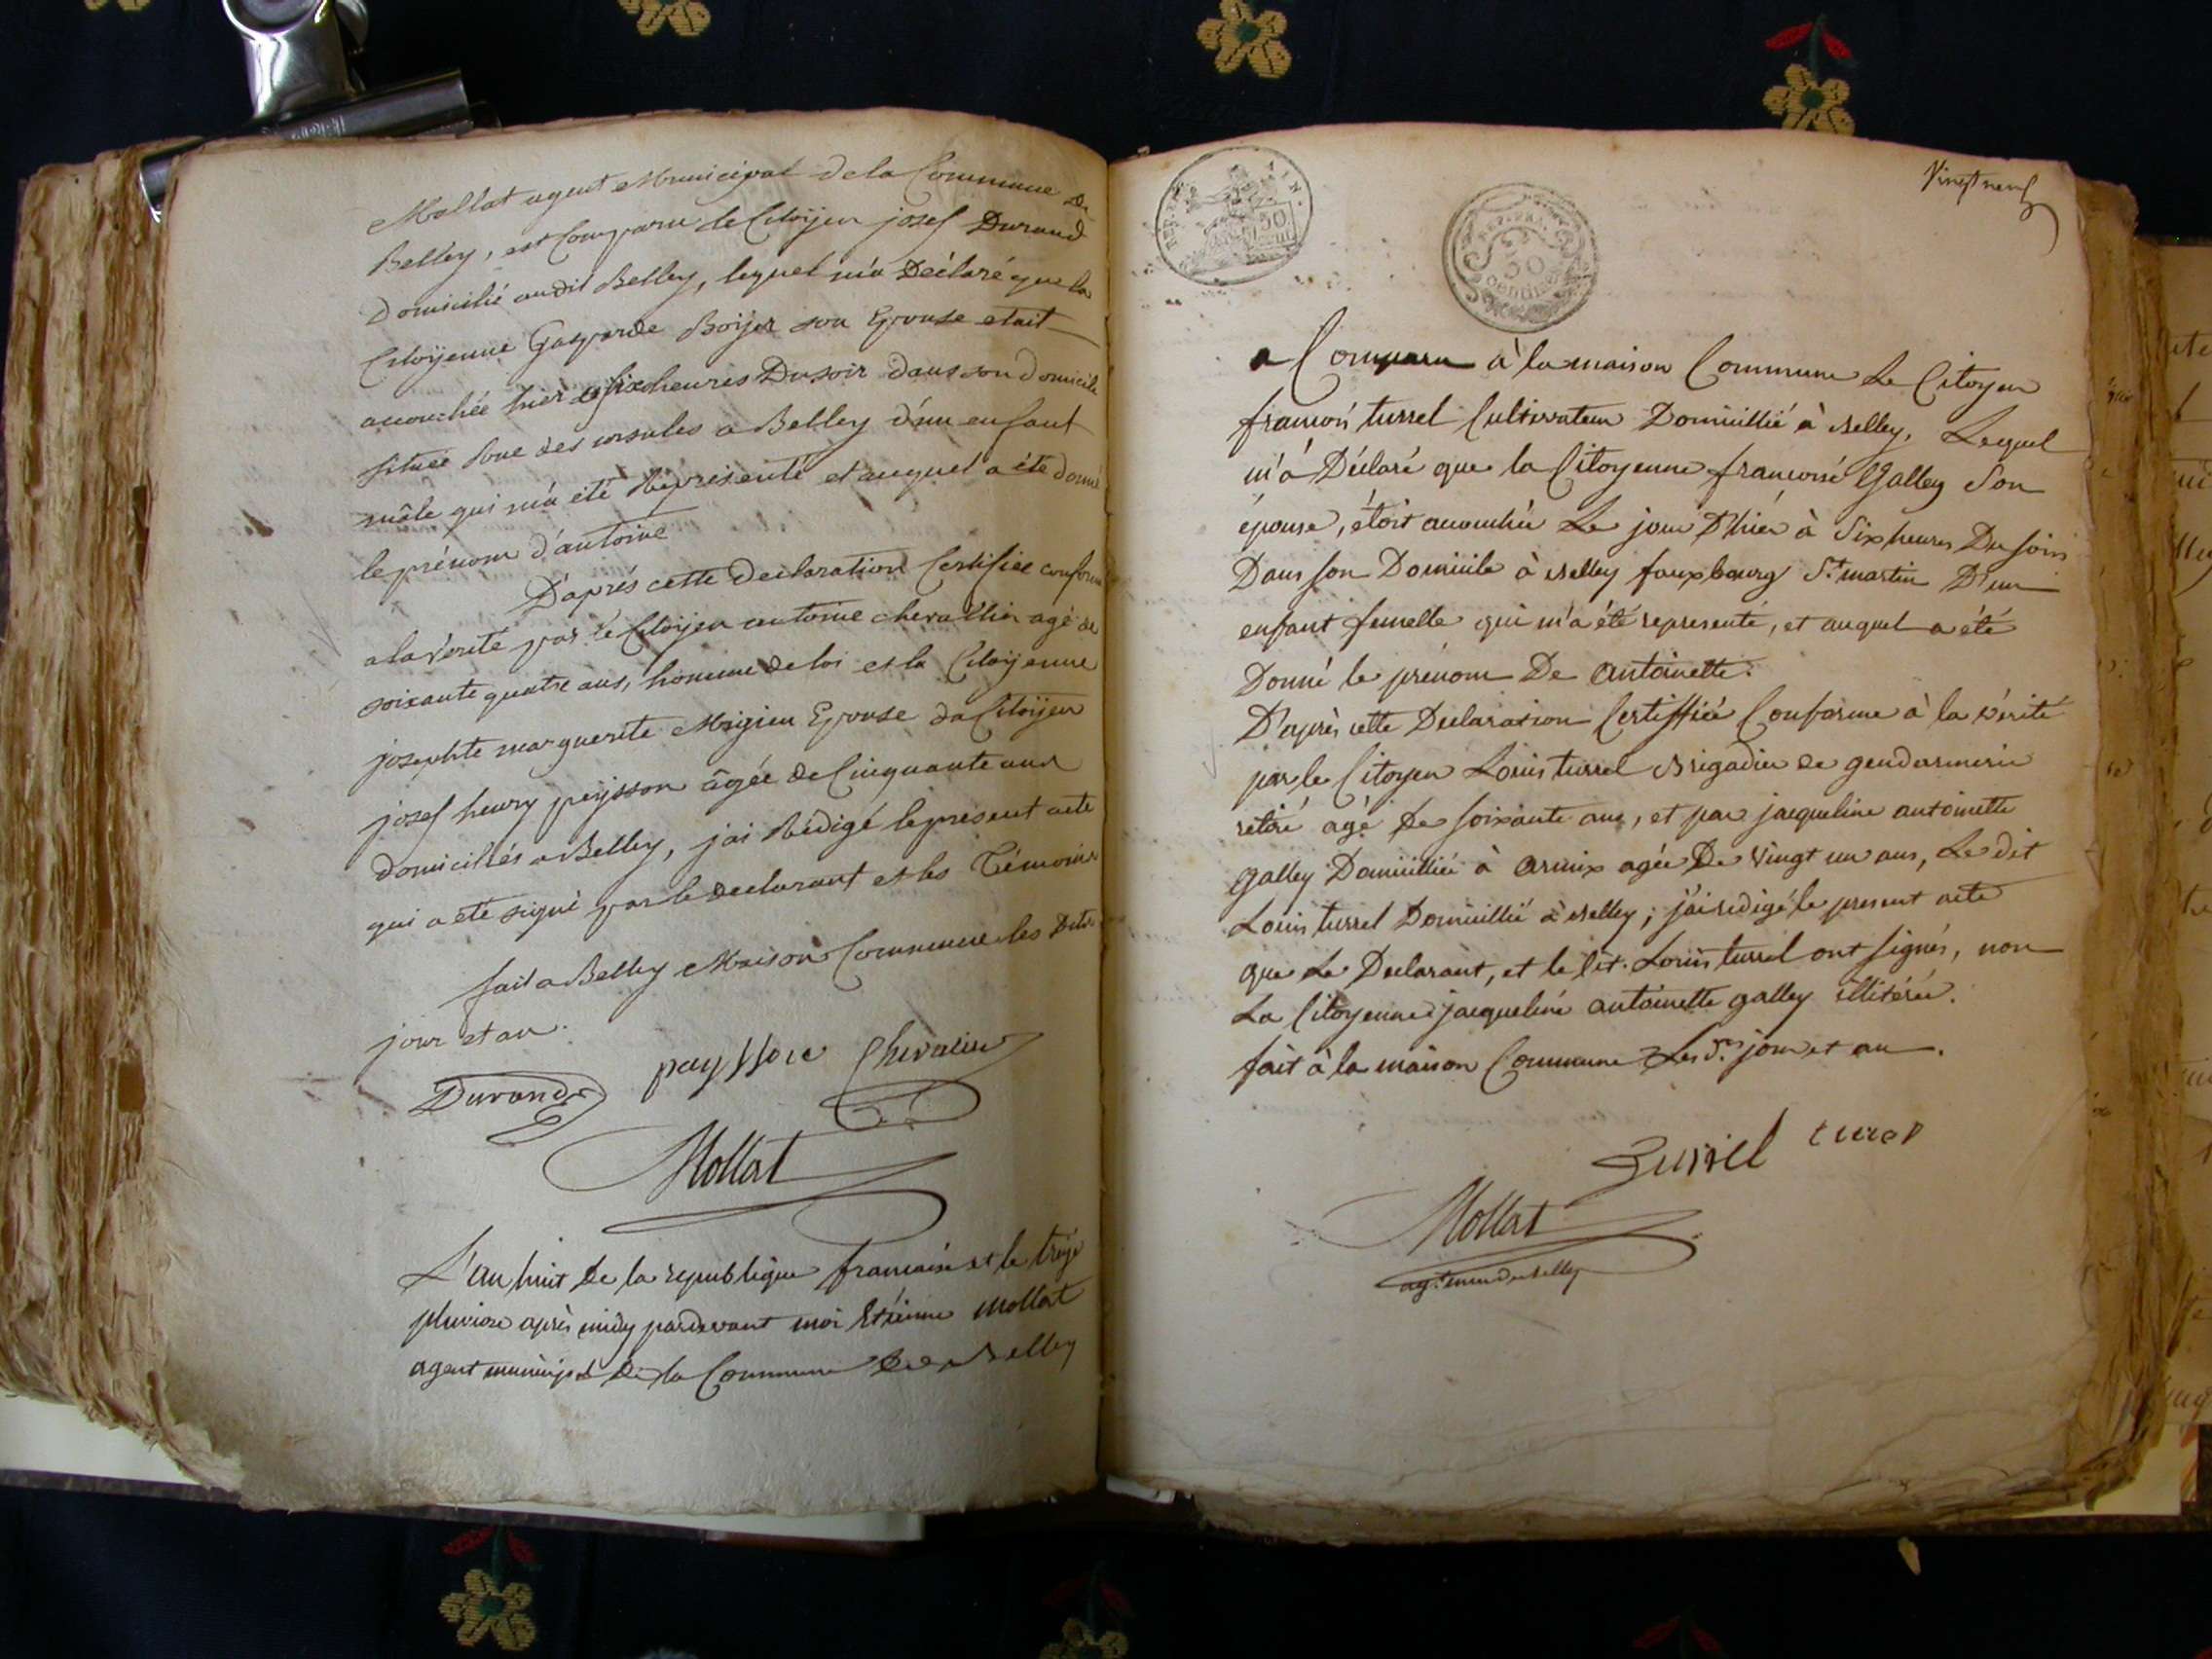 Mollat agent Municipal de la Commune de
Belley, est Comparu le Citoÿen josef Durand
Domicilié audit Belley, lequel m'a Déclaré que la
Citoÿenne Gasparde Boÿer son Epouse etait
accouchée hier a six heures Du soir dans son domicile
située Rue des ursules a Belley d'un enfant
mâle qui m'a été Représenté et auquel a été donné
le prénom d'antoine
D'aprés cette declaration Certifiée conforme
a la Vérité par le Citoÿen antoine chevallier agé de
soixante quatre ans, homme de loi et la Citoÿenne
josephte marguerite Migieu Epouse du Citoÿen
josef henry peÿsson âgée de Cinquante ans
domiciliés a Belley, j'ai Rédigé le present acte
qui a été signé par le declarant et les Témoins
fait a Belley Maison Commune les Dits
jour et an.
Durand paysson Chevalier
Mollat
L'an huit De la republique francaise et le treize
pluviose après midy pardevant moi Etienne Mollat
agent municipal De la Commune De Belley
Vingt neuf
REP. FRA.
50
CENTIMES
a Comparu à la maison Commune Le Citoyen
francois turrel Cultivateur Domicillié à Belley, Lequel
m'a Déclaré que la Citoyenne francoise Galley Son
épouse, étoit accouchée Le jour D'hier à Six heures Du soir
Dans son Domicile à Belley fauxbourg St. martin D'un
enfant femelle qui m'a été representé, et auquel a été
Donné le prénom De antoinette.
D'après cette Declaration Certiffiée Conforme à la vérité
par le Citoyen Louis turrel Brigadier de gendarmerie
retiré agé De soixante ans, et par jacqueline antoinette
galley Domicilliée à armix agée De Vingt un ans, Le dit
Louis turrel Domicillié à Belley; j'ai redigé le present acte
que Le Declarant, et le dit. Louis turrel ont signés, non
La Citoyenne jacqueline antoinette galley illitérée.
fait à la maison Commune Les dts. jour et an.
Turrel turel
Mollat
agt. mun de Belley